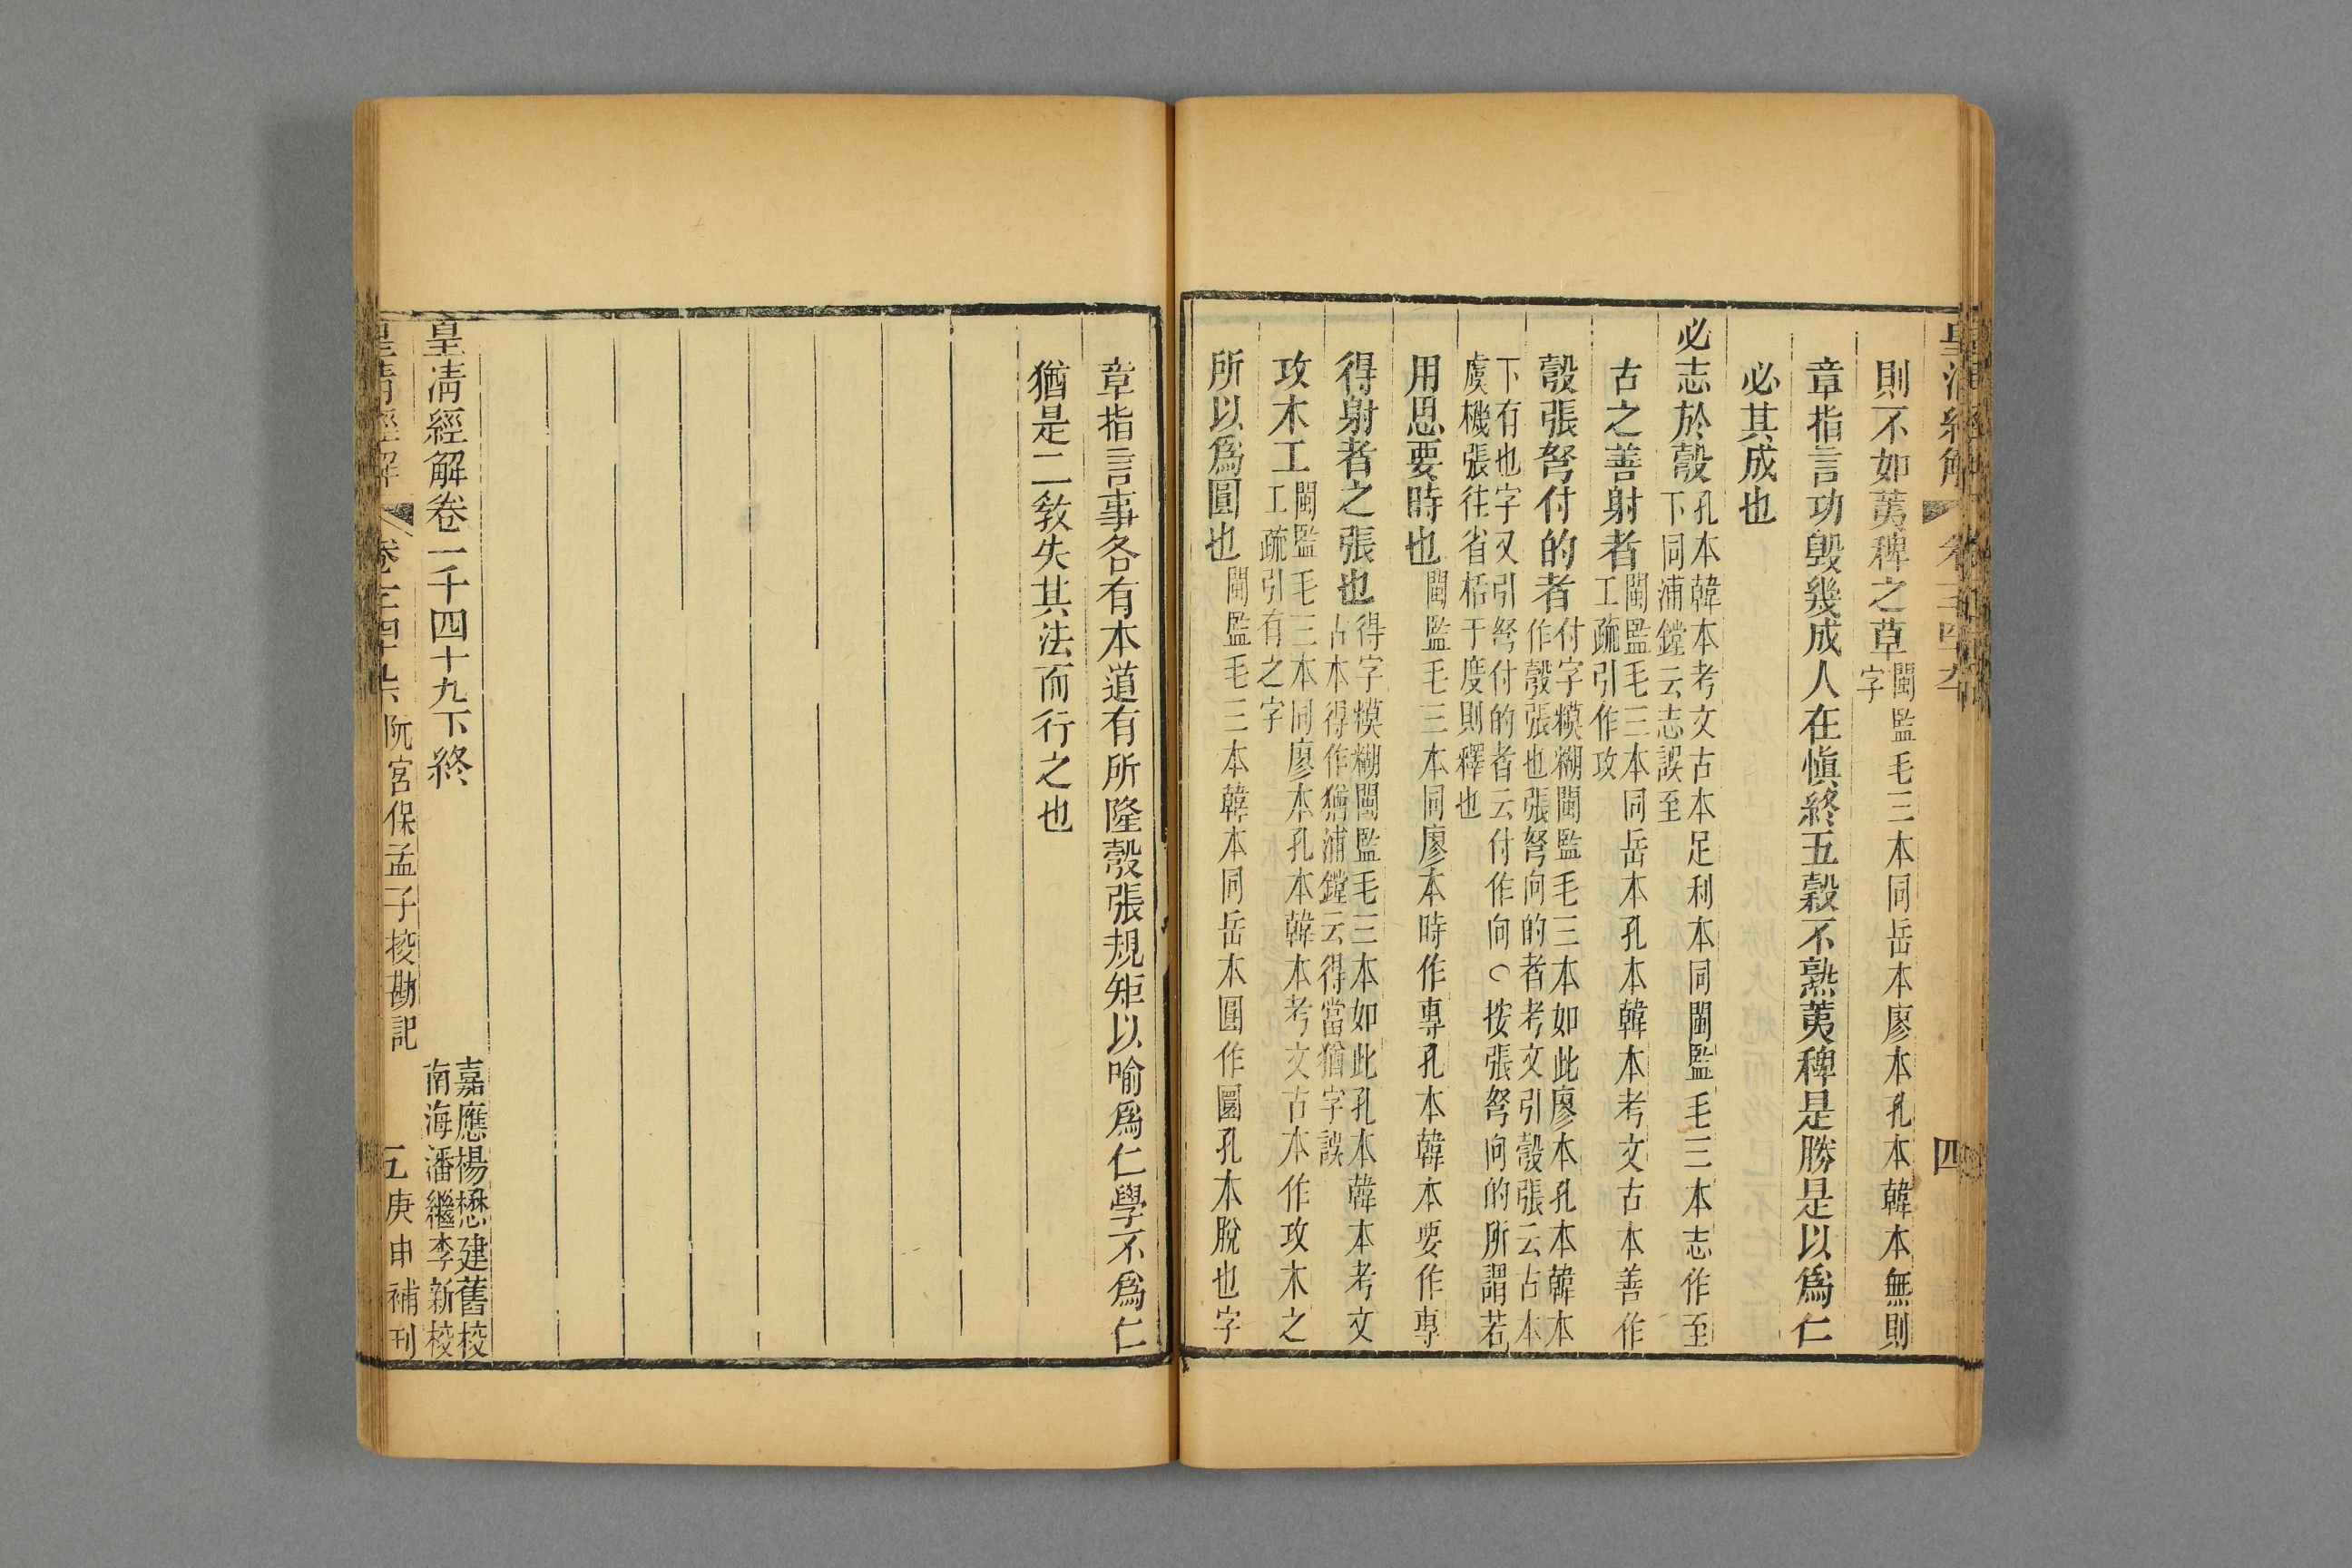 皇清經解
四
則不如荑稗之草閩監毛三本同岳本廖本孔本韓本無則字
章指言功毀幾成人在慎終五穀不熟荑稗是勝是以爲仁
必其成也
必志於彀孔本韓本考文古本足利本同閩監毛三本志作至下同浦鏜云志誤至
古之善射者閩監毛三本同岳本孔本韓本考文古本善作工疏引作攻
彀張弩付的者付字糢糊閩監毛三本如此廖本孔本韓本作彀張也張弩向的者考文引彀張云古本
下有也字又引弩付的者云付作向○按張弩向的所謂若虞機張往省栝于度則釋也
用思要時也閩監毛三本同廖本時作專孔本韓本要作專
得射者之張也得字糢糊閩監毛三本如此孔本韓本考文古本得作猶浦鏜云得當猶字誤
攻木工閩監毛三本同廖本孔本韓本考文古本作攻木之工疏引有之字
所以爲圓也閩監毛三本韓本同岳本圓作圜孔本脫也字
章指言事各有本道有所隆彀張規矩以喻爲仁學不爲仁
猶是二教失其法而行之也
皇清經解卷一千四十九下終
嘉應楊懋建舊校
南海潘繼李新校
皇清經解 阮宮保孟子挍勘記 五 庚申補刊